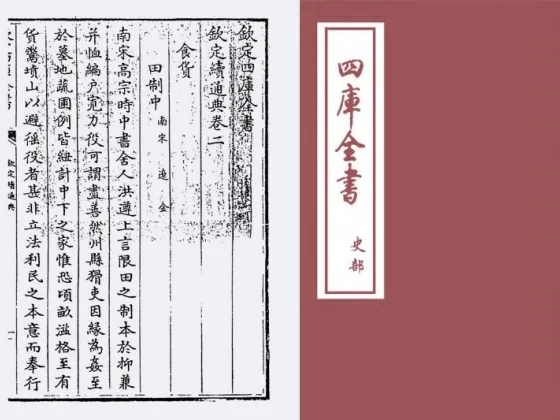 欽定四庫全書
欽定續通典卷二
食貨
田制中 南宋 遼 金
南宋高宗時中書舍人洪遵上言限田之制本於抑兼
并恤編户寛力役可謂盡善然州縣猾吏因縁為姦至
於墓地蔬圃例皆紐計中下之家惟恐頃畝溢格至有
貨鬻墳山以避徭役者甚非立法利民之本意而奉行
欽定續通典
一
四庫全書
史部